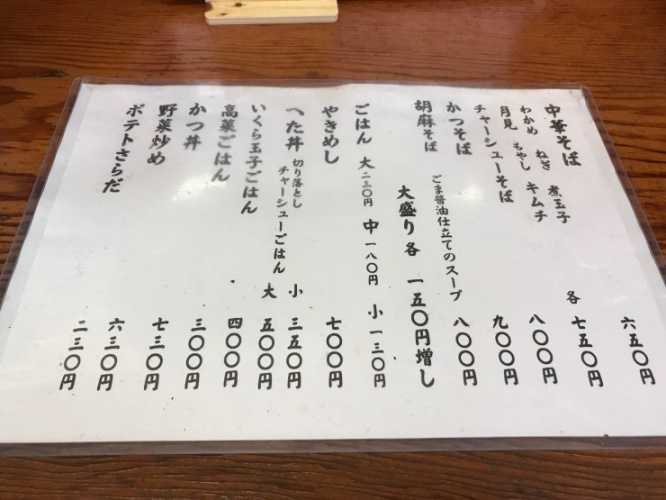 中華そば 六五〇円
わかめ ねぎ 煮玉子
月見 もやし キムチ 各 七五〇円
チャーシューそば 八〇〇円
かつそば 九〇〇円
胡麻そば ごま醤油仕立てのスープ 八〇〇円
大盛り 各 一五〇円増し
ごはん 大 二三〇円 中 一八〇円 小 一三〇円
やきめし 七〇〇円
へた丼 切り落とし チャーシューごはん 小 三五〇円
大 五〇〇円
いくら玉子ごはん 四〇〇円
高菜ごはん 三〇〇円
かつ丼 七三〇円
野菜炒め 六三〇円
ポテトさらだ 二三〇円